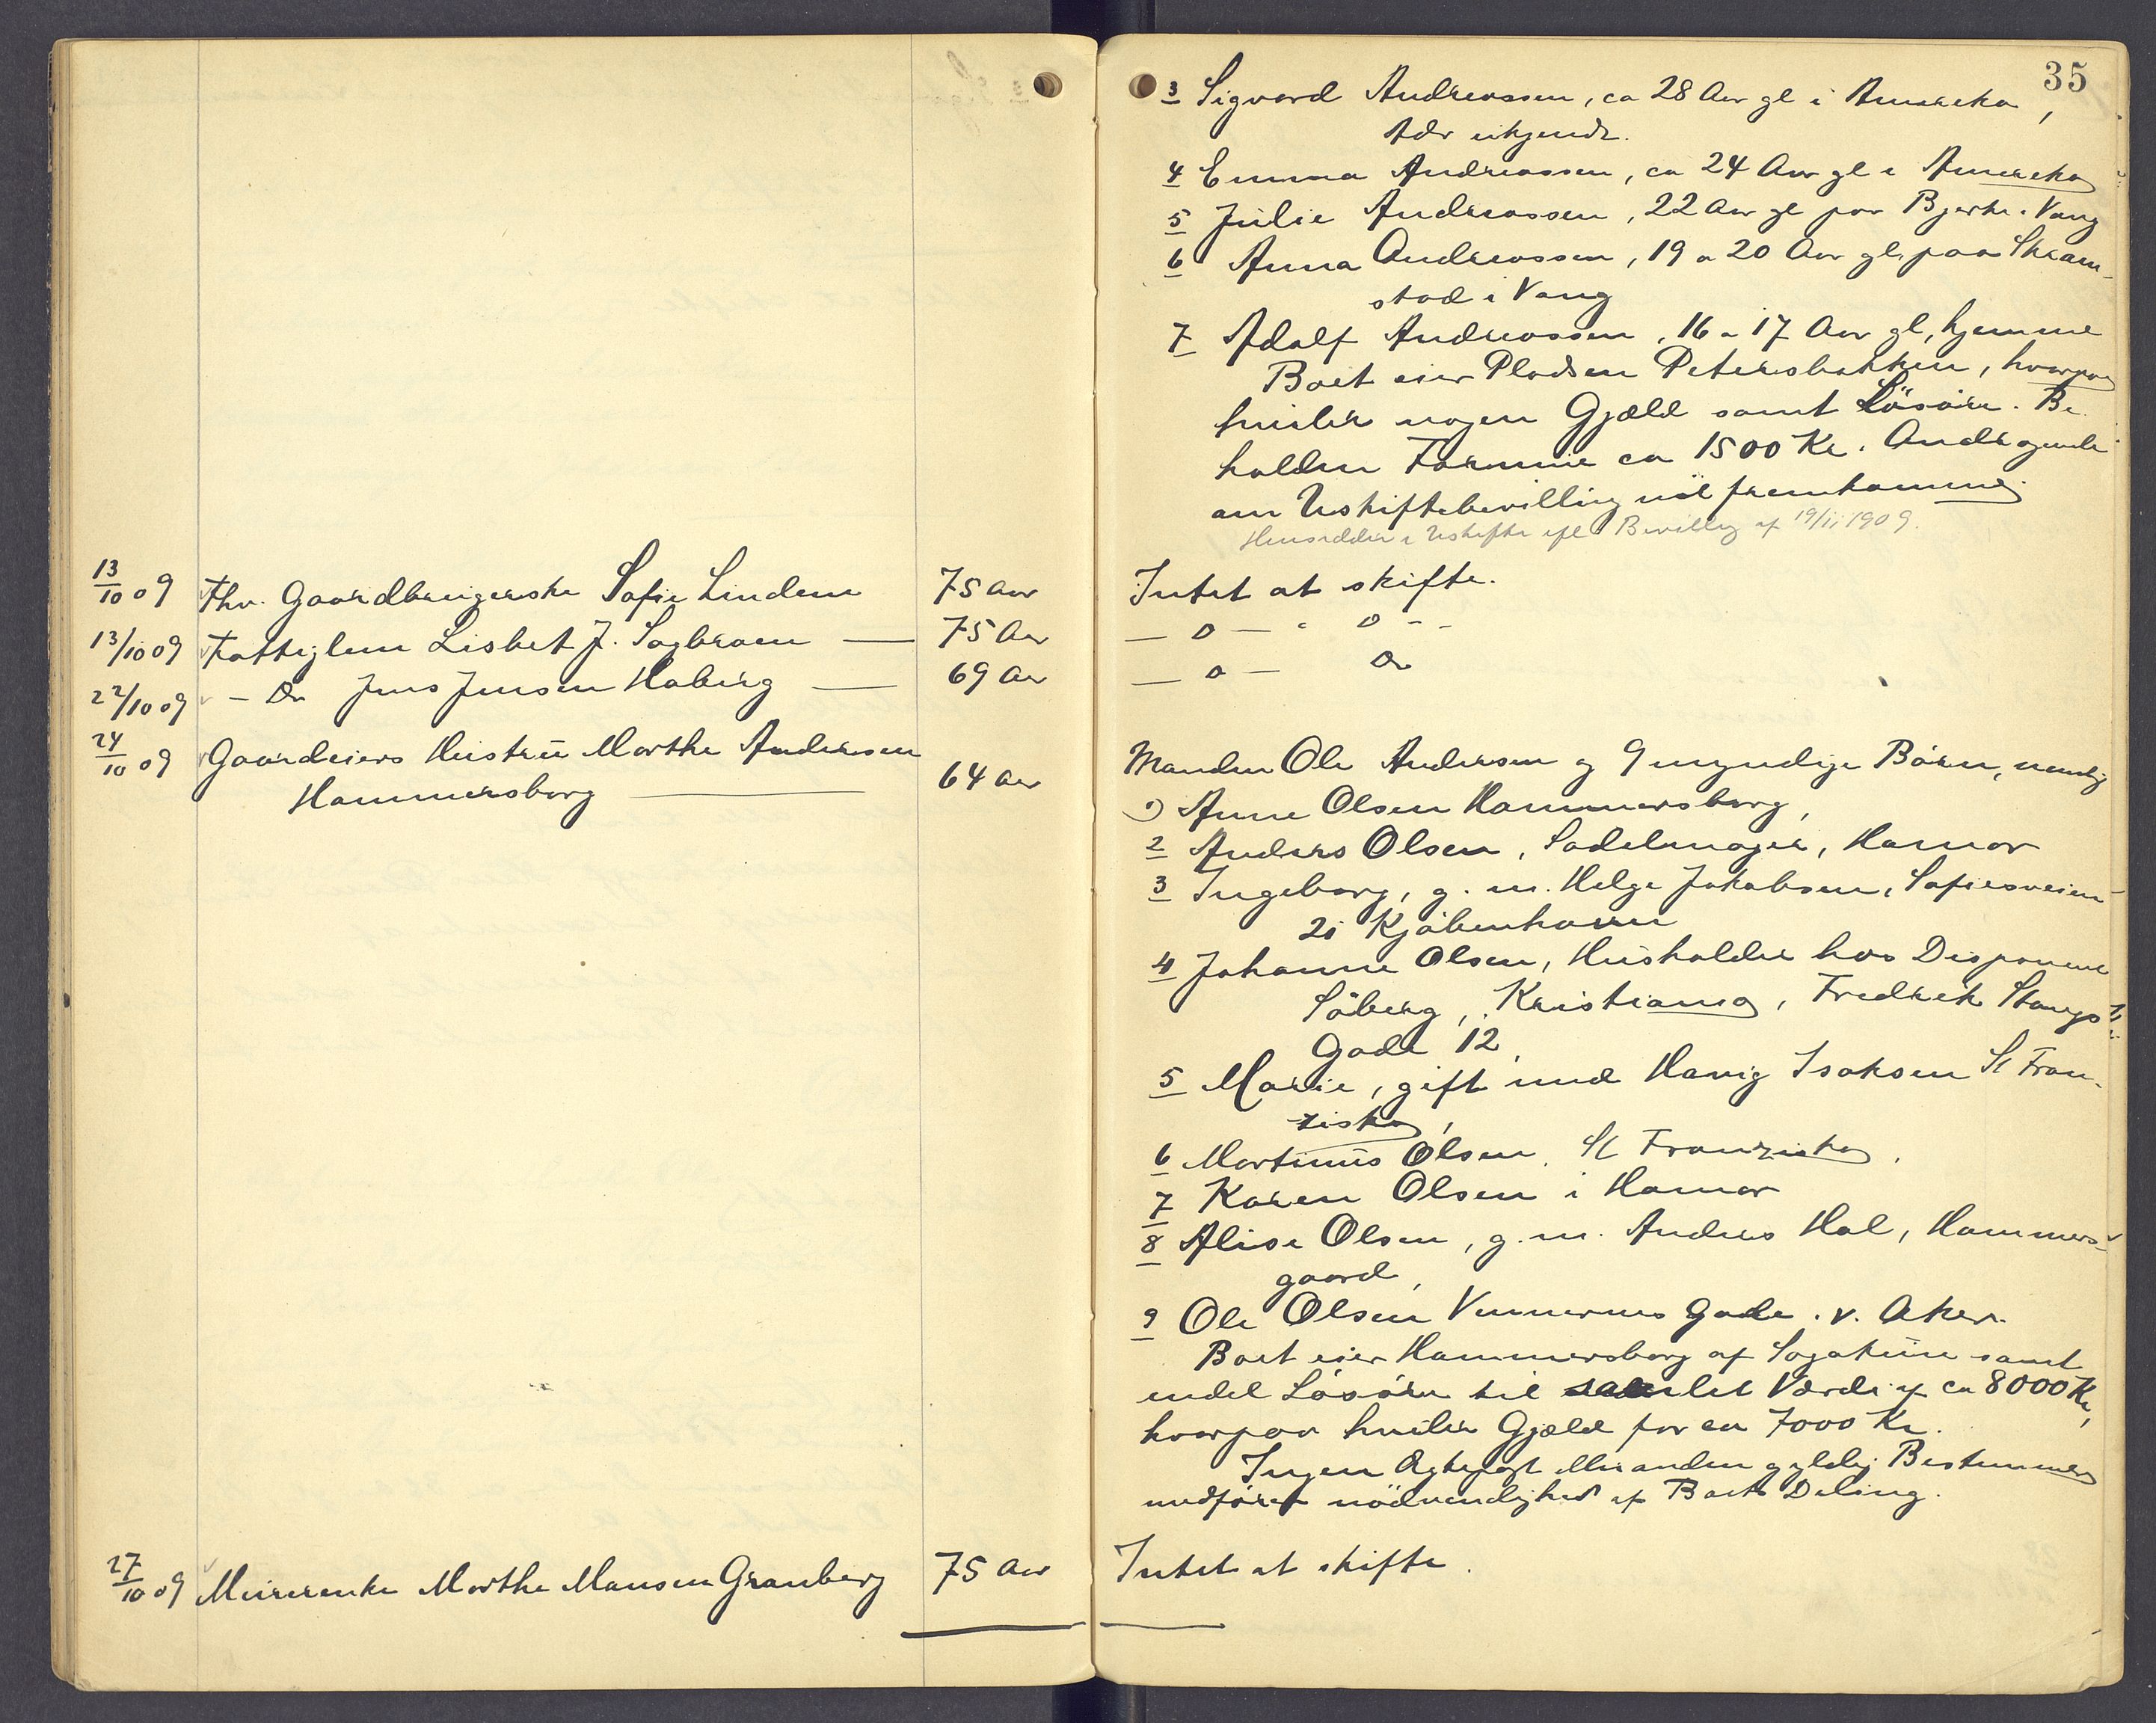 35
3 Sigvard Andreassen, ca 28 Aar gl i Amerika,
Adr ukjendt.
4 Emma Andreassen, ca 24 Aar gl i Amerika
5 Julie Andreassen, 22 Aar gl paa Bjerke i Vang
6 Anna Andreassen, 19 a 20 Aar gl, paa Skram-
stad i Vang
7 Adolf Andreassen, 16 a 17 Aar gl, hjemme
Boet eier Pladsen Petersbakken, hvorpaa
hviler nogen Gjæld samt Løsøre. Be-
holden Formue ca 1500 Kr. Andragende
om Uskiftebevilling vil fremkomme.
Hensidder i Uskifte ifl Bevilling af 19/11 1909.
13/10 09 Fhv. Gaardbrugerske Sofie Lindem 75 Aar Intet at skifte.
13/10 09 Fattiglem Lisbet J. Sagbraaten — 75 Aar — o — o —
22/10 09 — Do Jens Jensen Haberg — 69 Aar — o — Do
24/10 09 Gaardeiers Hustru Marthe Andersen
Hammersborg — 64 Aar
Manden Ole Andersen og 9 myndige Børn, nemlig
1) Anne Olsen Hammersborg,
2 Anders Olsen, Sadelmager, Hamar
3 Ingeborg, g. m. Helge Jakobsen, Sofiesveien
21 Kjøbenhavn
4 Johanne Olsen, Husholder hos Disponent
Søberg, Kristiania, Fredrik Stangs
Gade 12,
5 Marie, gift med Isaksen St Fran-
ziska,
6 Martinus Olsen, St Franziska,
7 Karen Olsen i Hamar
8 Alise Olsen, g. m. Anders Hol, Hammers-
gaard,
9 Ole Olsen Vennernes Gade v. Aker.
Boet eier Hammersborg af Sagatuen samt
endel Løsøre til samlet Værdi af ca 8000 Kr,
hvorpaa hviler Gjæld for ca 7000 Kr.
Ingen Ægtepagt eller anden gyldig Bestemmelse
medfører nødvendighed af Boets Deling.
27/10 09 Meierenke Marthe Hansen Granberg 75 Aar Intet at skifte.